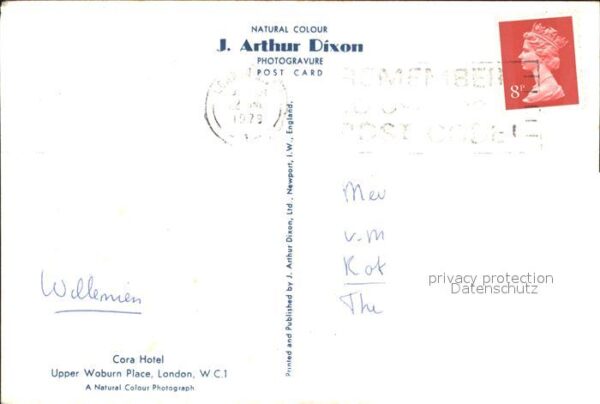 NATURAL COLOUR
J. Arthur Dixon
PHOTOGRAVURE
POST CARD
8P
1979
REMEMBER
POST CODE
Printed and Published by J. Arthur Dixon, Ltd., Newport, I.W., England.
Mev
v.m
Kot
The
privacy protection
Datenschutz
Willemien
Cora Hotel
Upper Woburn Place, London, W C.1
A Natural Colour Photograph